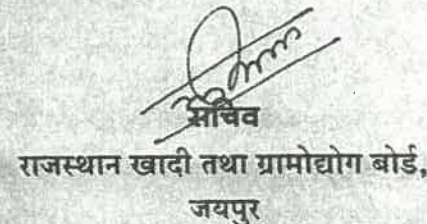 सचिव
राजस्थान खादी तथा ग्रामोद्योग बोर्ड,
जयपुर